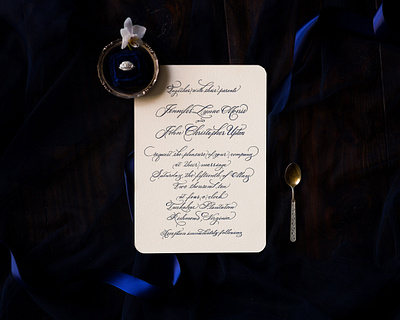 Together with their parents
Jennifer Lynne Morris
and
John Christopher Upton
request the pleasure of your company
at their marriage
Saturday, the fifteenth of May
Two thousand ten
at four o'clock
Tuckahoe Plantation
Richmond, Virginia
Reception immediately following